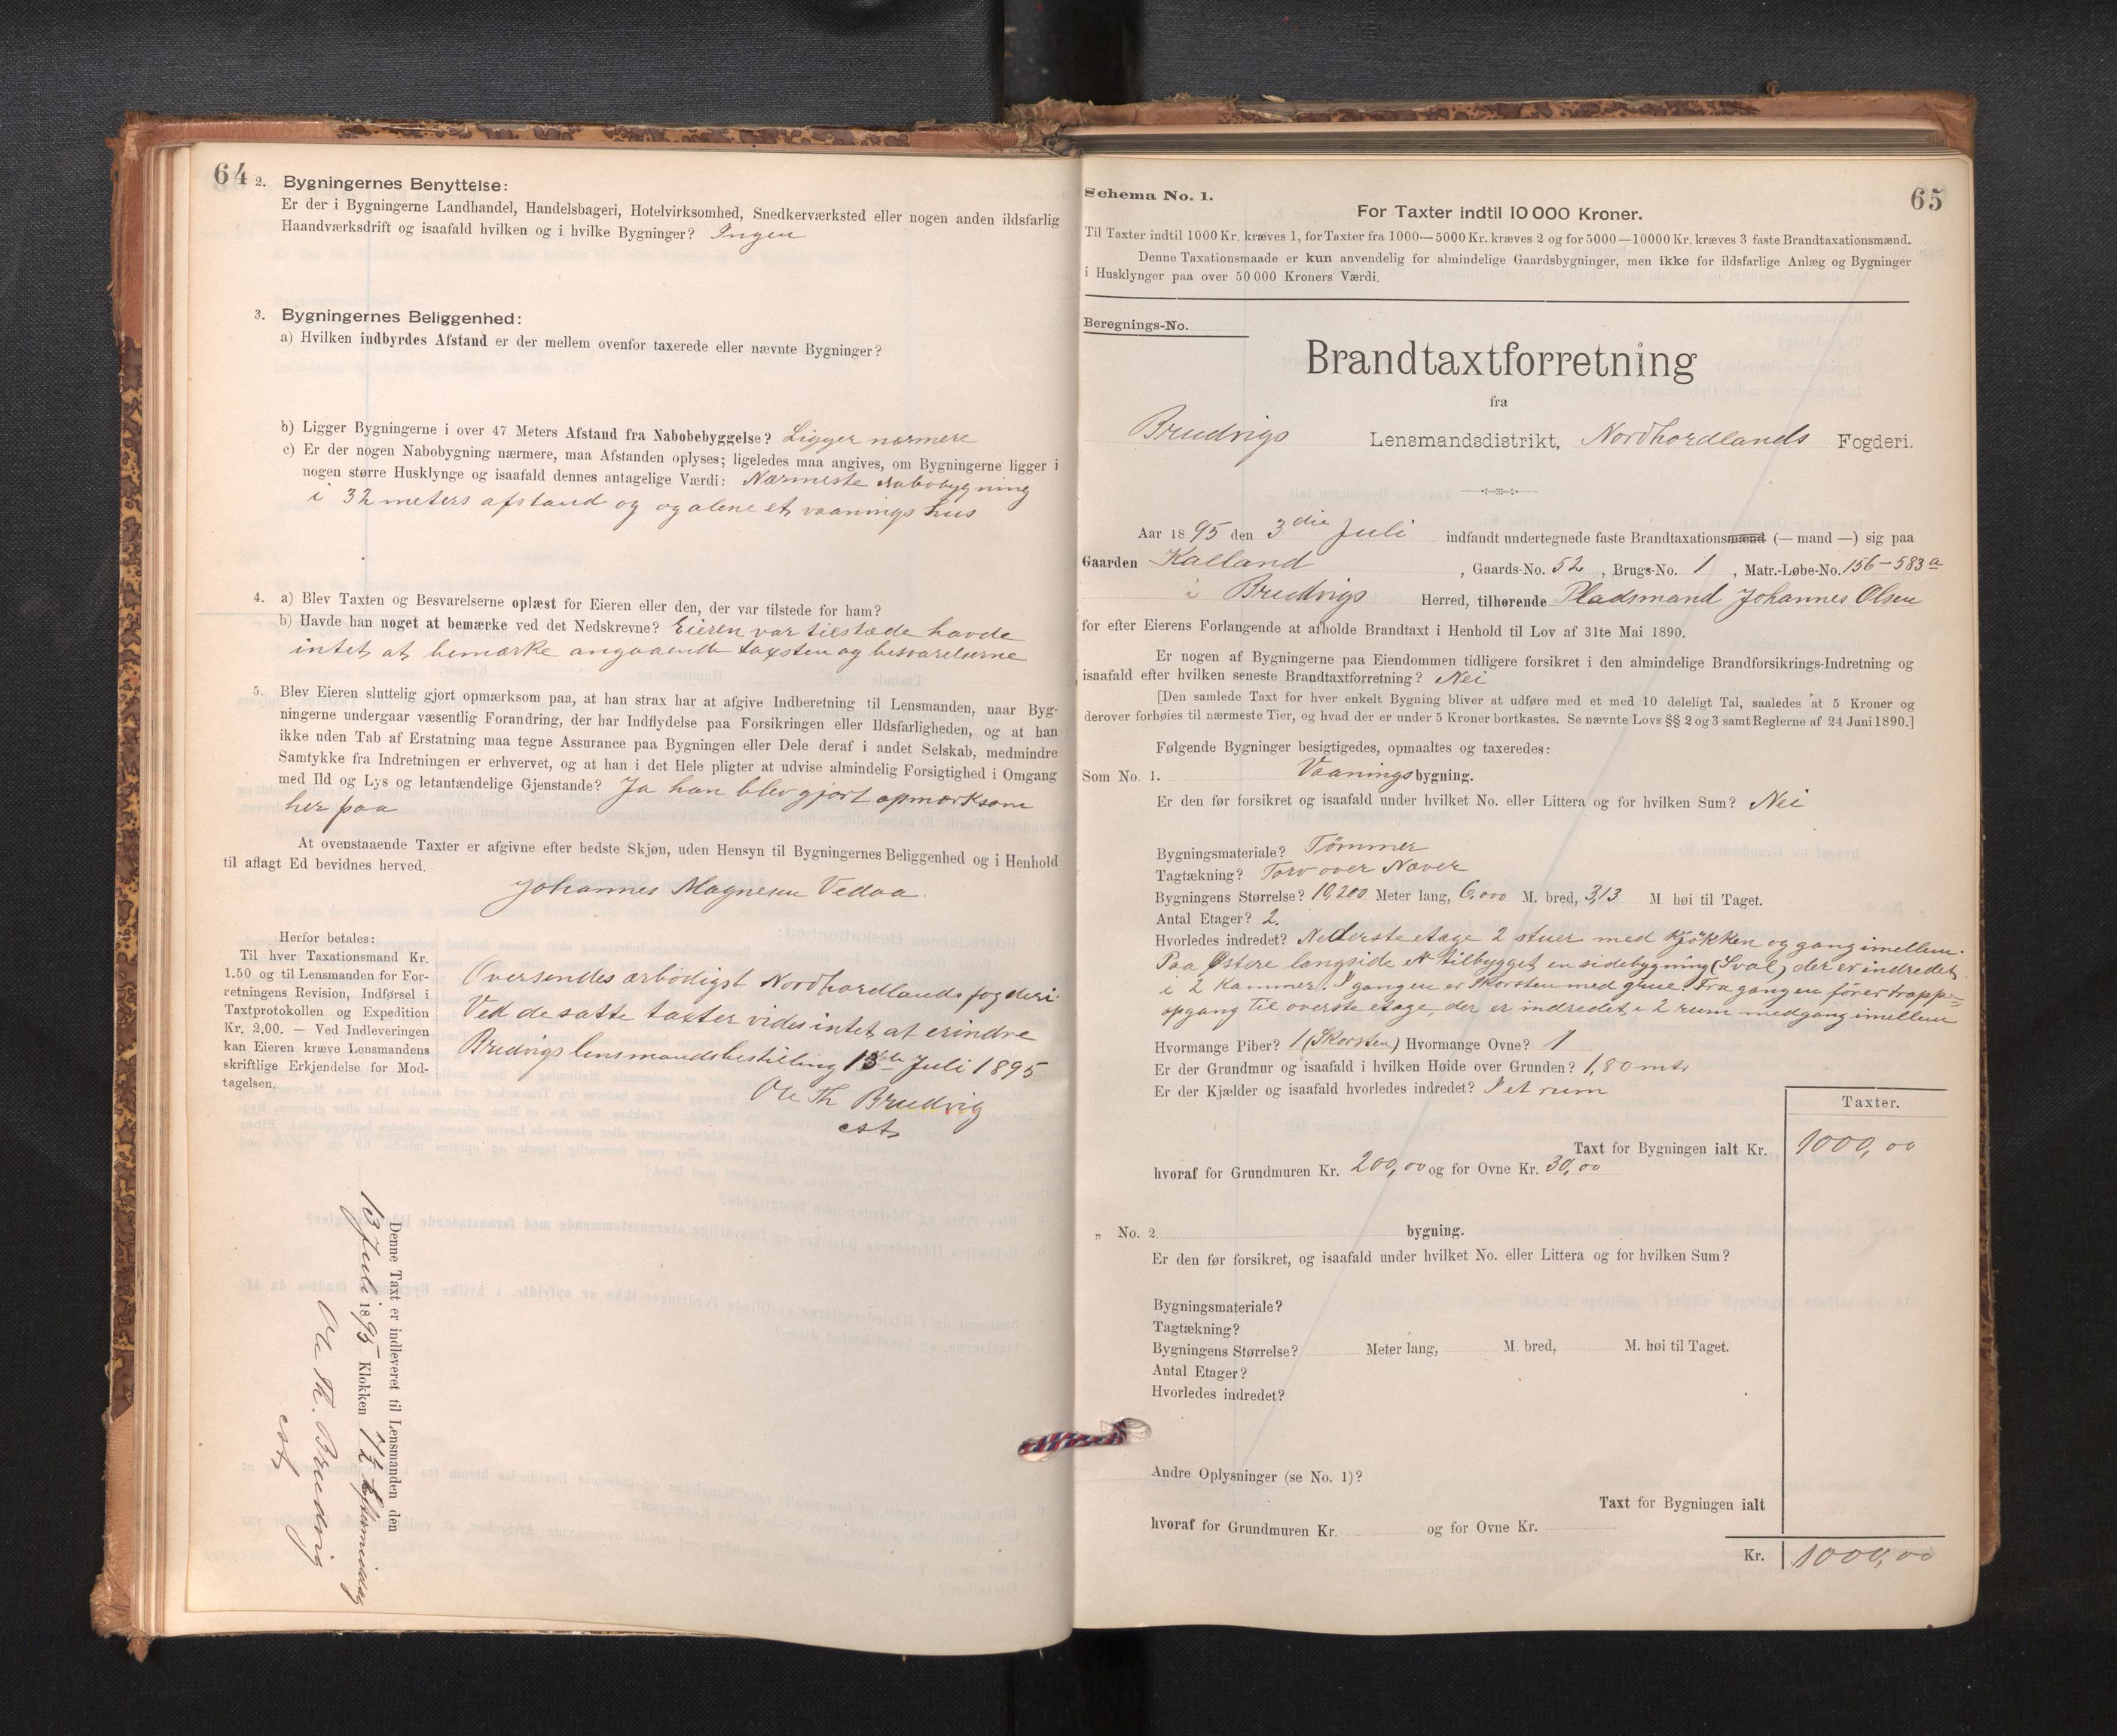 64
2. Bygningernes Benyttelse:
Er der i Bygningerne Landhandel, Handelsbageri, Hotelvirksomhed, Snedkerværksted eller nogen anden ildsfarlig
Haandværksdrift og isaafald hvilken og i hvilke Bygninger? Ingen
3. Bygningernes Beliggenhed:
a) Hvilken indbyrdes Afstand er der mellem ovenfor taxerede eller nævnte Bygninger?
b) Ligger Bygningerne i over 47 Meters Afstand fra Nabobebyggelse? Ligger nærmere
c) Er der nogen Nabobygning nærmere, maa Afstanden oplyses; ligeledes maa angives, om Bygningerne ligger i
nogen større Husklynge og isaafald dennes antagelige Værdi: Nærmeste nabobygning
i 32 meters afstand og og alene et vaaningshus
4. a) Blev Taxten og Besvarelserne oplæst for Eieren eller den, der var tilstede for ham?
b) Havde han noget at bemærke ved det Nedskrevne? Eieren var tilstæde havde
intet at bemærke angaaende taxsten og besvarelserne
5. Blev Eieren sluttelig gjort opmærksom paa, at han strax har at afgive Indberetning til Lensmanden, naar Byg-
ningerne undergaar væsentlig Forandring, der har Indflydelse paa Forsikringen eller Ildsfarligheden, og at han
ikke uden Tab af Erstatning maa tegne Assurance paa Bygningen eller Dele deraf i andet Selskab, medmindre
Samtykke fra Indretningen er erhvervet, og at han i det Hele pligter at udvise almindelig Forsigtighed i Omgang
med Ild og Lys og letantændelige Gjenstande? Ja han blev gjort opmærksom
her paa
At ovenstaaende Taxter er afgivne efter bedste Skjøn, uden Hensyn til Bygningernes Beliggenhed og i Henhold
til aflagt Ed bevidnes herved.
Johannes Magnesen Vedaa.
Herfor betales:
Til hver Taxationsmand Kr.
1.50 og til Lensmanden for For-
retningens Revision, Indførsel i
Taxtprotokollen og Expedition
Kr. 2.00. — Ved Indleveringen
kan Eieren kræve Lensmandens
skriftlige Erkjendelse for Mod-
tagelsen.
Oversendes ærbødigst Nordhordlands fogderi.
Ved de satte taxter vides intet at erindre
Brudvigs lensmandsbestilling 13de Juli 1895
Ole Th Brudvig
cst
Denne Taxt er indleveret til Lensmanden den
13 Juli 1895 Klokken 7½ Eftermiddag
Ole Th. Brudvig
cst
65
Schema No. 1.
For Taxter indtil 10 000 Kroner.
Til Taxter indtil 1000 Kr. kræves 1, for Taxter fra 1000—5000 Kr. kræves 2 og for 5000—10000 Kr. kræves 3 faste Brandtaxationsmænd.
Denne Taxationsmaade er kun anvendelig for almindelige Gaardsbygninger, men ikke for ildsfarlige Anlæg og Bygninger
i Husklynger paa over 50 000 Kroners Værdi.
Beregnings-No.
Brandtaxtforretning
fra
Brudvigs Lensmandsdistrikt, Nordhordlands Fogderi.
Aar 1895 den 3die Juli indfandt undertegnede faste Brandtaxationsmænd (— mand —) sig paa
Gaarden Kalland, Gaards-No. 52, Brugs-No. 1, Matr.-Løbe-No. 156-583a
i Brudvigs Herred, tilhørende Pladsmand Johannes Olsen
for efter Eierens Forlangende at afholde Brandtaxt i Henhold til Lov af 31te Mai 1890.
Er nogen af Bygningerne paa Eiendommen tidligere forsikret i den almindelige Brandforsikrings-Indretning og
isaafald efter hvilken seneste Brandtaxtforretning? Nei
[Den samlede Taxt for hver enkelt Bygning bliver at udføre med et med 10 deleligt Tal, saaledes at 5 Kroner og
derover forhøies til nærmeste Tier, og hvad der er under 5 Kroner bortkastes. Se nævnte Lovs §§ 2 og 3 samt Reglerne af 24 Juni 1890.]
Følgende Bygninger besigtigedes, opmaaltes og taxeredes:
Som No. 1. Vaaningsbygning.
Er den før forsikret og isaafald under hvilket No. eller Littera og for hvilken Sum? Nei
Bygningsmateriale? Tømmer
Tagtækning? Torv over Næver
Bygningens Størrelse? 10,200 Meter lang, 6,000 M. bred, 3,13 M. høi til Taget.
Antal Etager? 2.
Hvorledes indredet? Nederste etage 2 stuer med kjøkken og gang imellem.
Paa Østere langside et tilbygget en sidebygning (Sval) der er indredet
i 2 Kammer. I gangen er Skorsten med grue. Fra gangen fører trappe=
opgang til øverste etage, der er indredet i 2 rum med gang imellem
Hvormange Piber? 1 (Skorsten) Hvormange Ovne? 1
Er der Grundmur og isaafald i hvilken Høide over Grunden? 1,80 mtr
Er der Kjælder og isaafald hvorledes indredet? I et rum
Taxter.
Taxt for Bygningen ialt Kr. 1000,00
hvoraf for Grundmuren Kr. 200,00 og for Ovne Kr. 30,00
„ No. 2 bygning.
Er den før forsikret, og isaafald under hvilket No. eller Littera og for hvilken Sum?
Bygningsmateriale?
Tagtækning?
Bygningens Størrelse? Meter lang, M. bred, M. høi til Taget.
Antal Etager?
Hvorledes indredet?
Andre Oplysninger (se No. 1)?
Taxt for Bygningen ialt
hvoraf for Grundmuren Kr. og for Ovne Kr.
Kr. 1000,00